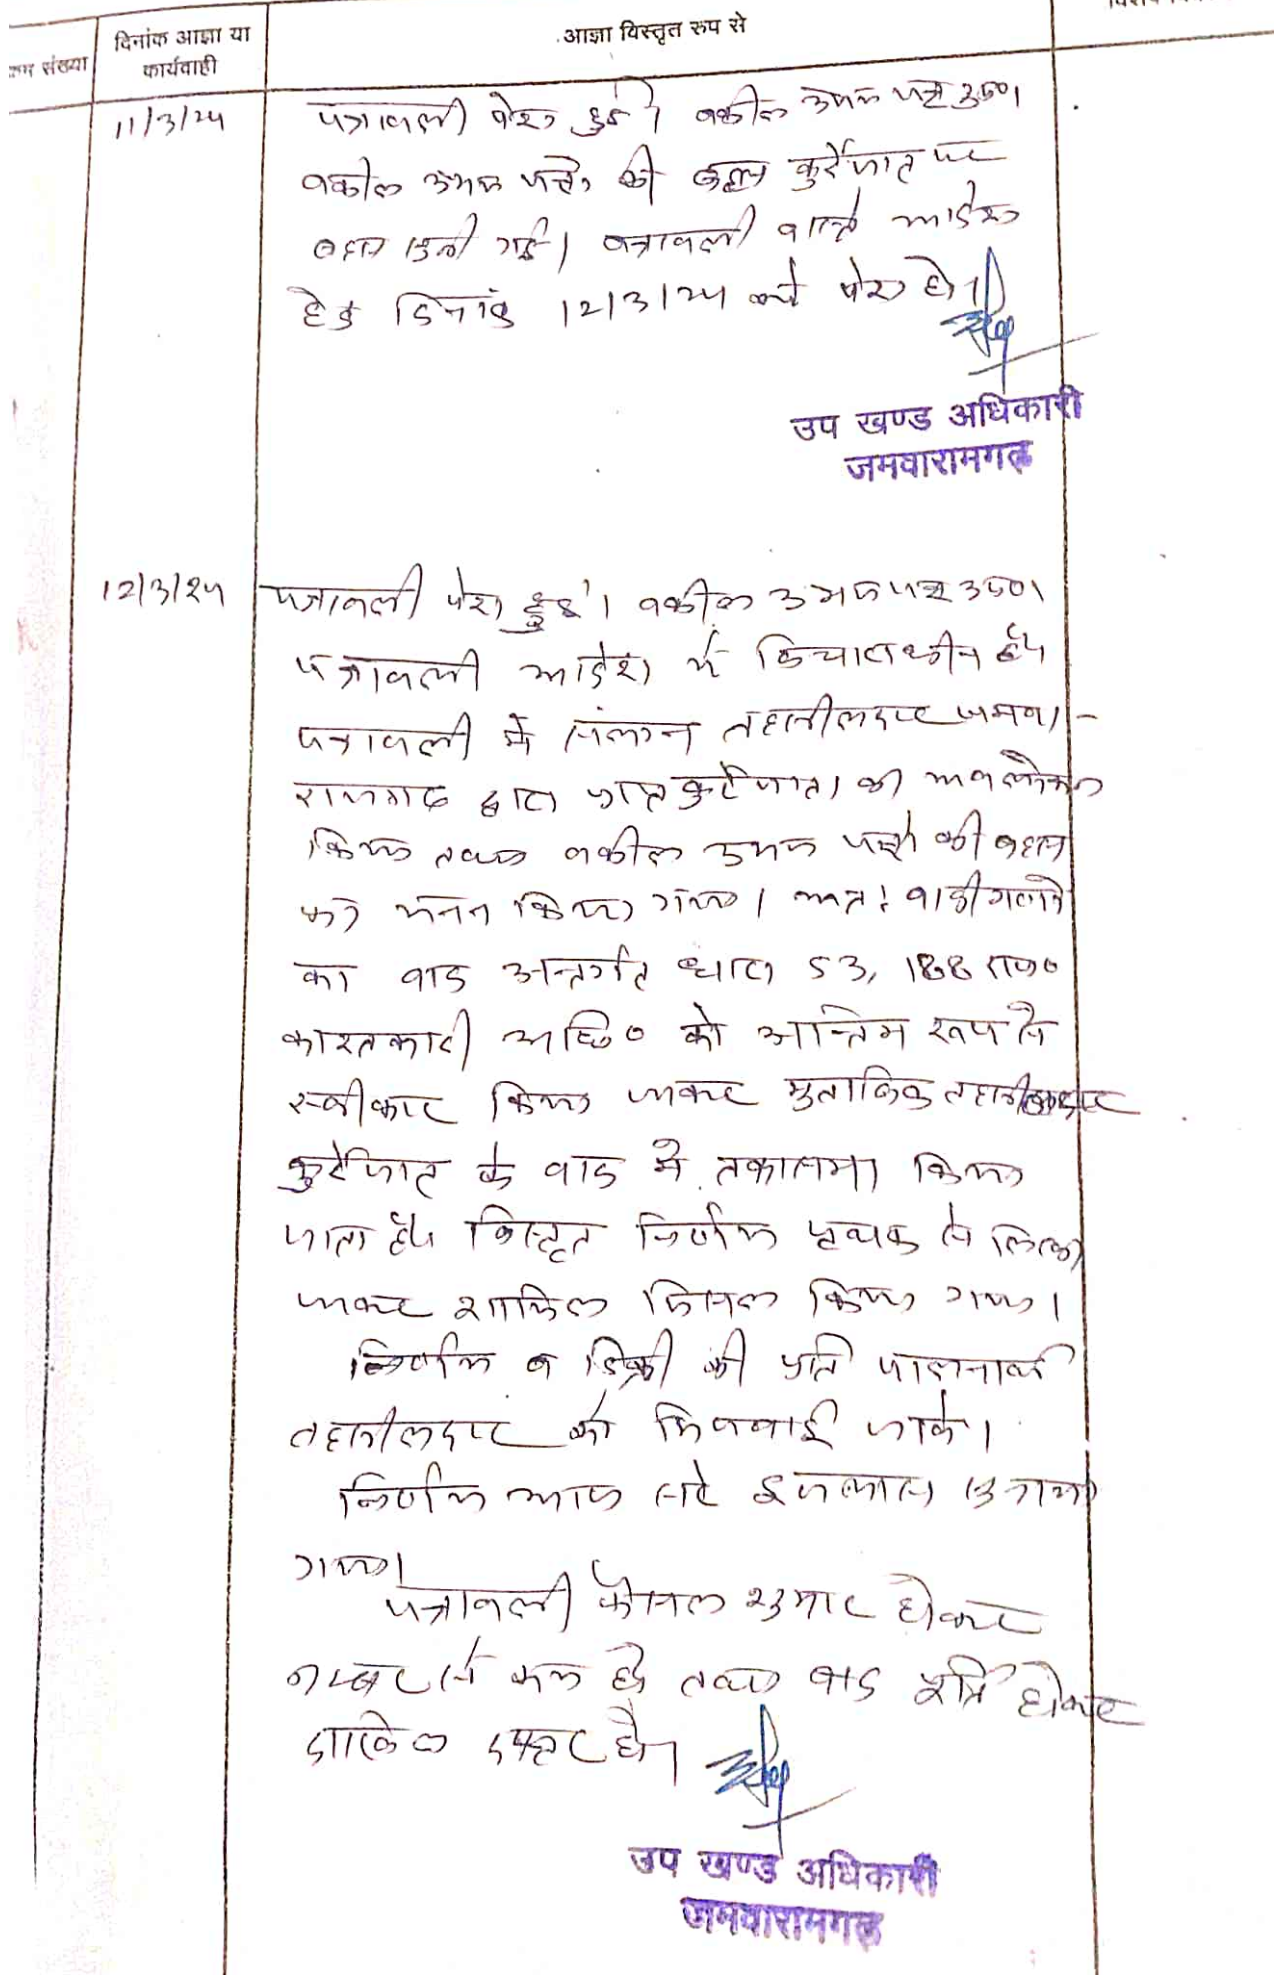 क्रम संख्या
दिनांक आज्ञा या
कार्यवाही
आज्ञा विस्तृत रूप से
11/3/24
पत्रावली पेश हुई। वकील उभय पक्ष उप०।
वकील उभय पक्षो की बहस कुर्रेजात पर
बहस सुनी गई। पत्रावली वास्ते आदेश
हेतु दिनांक 12/3/24 को पेश हो।
उप खण्ड अधिकारी
जमवारामगढ
12/3/24
पत्रावली पेश हुई। वकील उभय पक्ष उप०।
पत्रावली आदेश में विचाराधीन है।
पत्रावली में संलग्न तहसीलदार जमवा-
रामगढ द्वारा प्राप्त कुर्रेजात का अवलोकन
किया तथा वकील उभय पक्षो की बहस
को मनन किया गया। अतः वादीगण
का वाद अन्तर्गत धारा 53, 188 राज०
काश्तकारी अधि० को अन्तिम रूप से
स्वीकार किया जाकर मुताबिक तहसीलदार
कुर्रेजात के वाद में तकासमा किया
जाता है। विस्तृत निर्णय पृथक से लिखा
जाकर शामिल मिसल किया गया।
निर्णय व डिक्री की प्रति पालनार्थ
तहसीलदार को भिजवाई जावे।
निर्णय आज सरे इजलास सुनाया
गया।
पत्रावली फैसल शुमार होकर
नम्बर से कम हो तथा वाद पूर्ति होकर
दाखिल दफ्तर हो।
उप खण्ड अधिकारी
जमवारामगढ